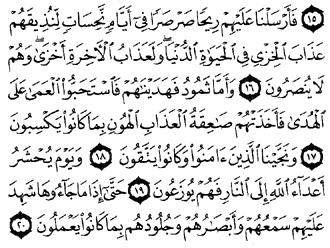 ١٥ فَأَرْسَلْنَا عَلَيْهِمْ رِيحًا صَرْصَرًا فِىٓ أَيَّامٍ نَّحِسَاتٍ لِّنُذِيقَهُمْ
عَذَابَ ٱلْخِزْىِ فِى ٱلْحَيَوٰةِ ٱلدُّنْيَا ۖ وَلَعَذَابُ ٱلْءَاخِرَةِ أَخْزَىٰ ۖ وَهُمْ
لَا يُنصَرُونَ ١٦ وَأَمَّا ثَمُودُ فَهَدَيْنَٰهُمْ فَٱسْتَحَبُّوا۟ ٱلْعَمَىٰ عَلَى
ٱلْهُدَىٰ فَأَخَذَتْهُمْ صَٰعِقَةُ ٱلْعَذَابِ ٱلْهُونِ بِمَا كَانُوا۟ يَكْسِبُونَ
١٧ وَنَجَّيْنَا ٱلَّذِينَ ءَامَنُوا۟ وَكَانُوا۟ يَتَّقُونَ ١٨ وَيَوْمَ يُحْشَرُ
أَعْدَآءُ ٱللَّهِ إِلَى ٱلنَّارِ فَهُمْ يُوزَعُونَ ١٩ حَتَّىٰٓ إِذَا مَا جَآءُوهَا شَهِدَ
عَلَيْهِمْ سَمْعُهُمْ وَأَبْصَٰرُهُمْ وَجُلُودُهُم بِمَا كَانُوا۟ يَعْمَلُونَ ٢٠